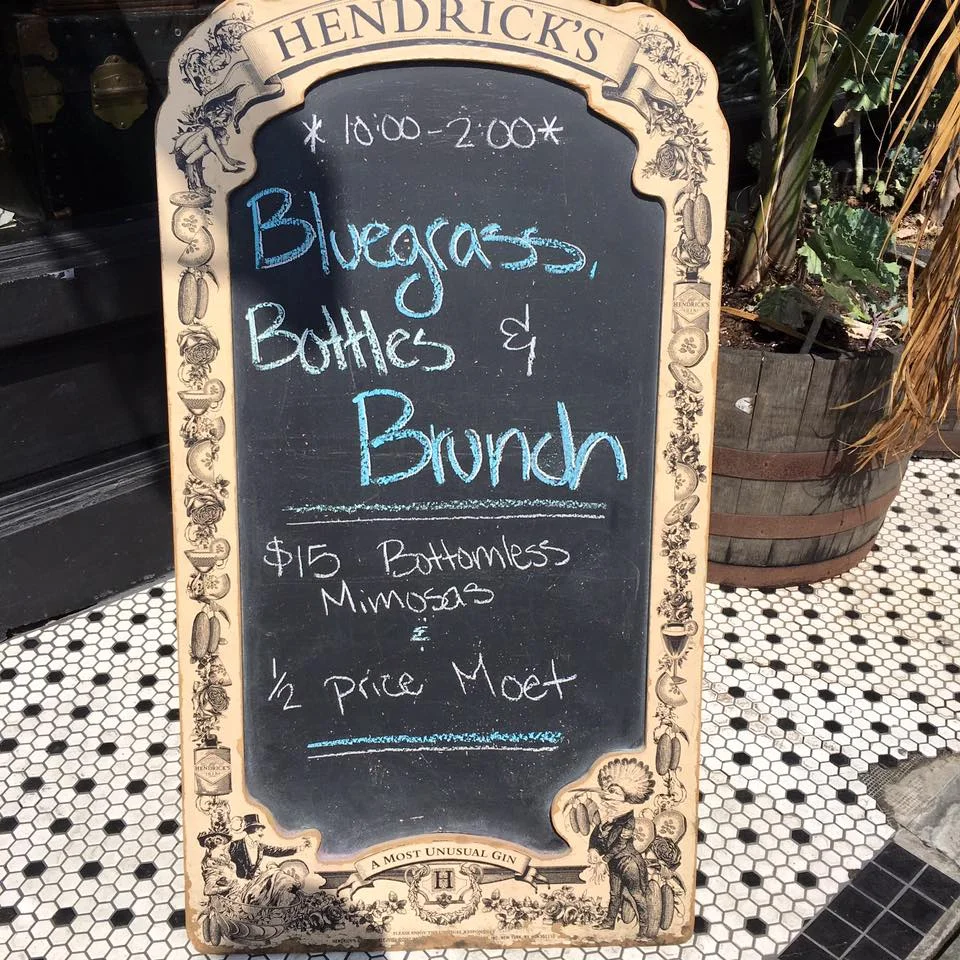 HENDRICK'S
* 10:00-2:00 *
Bluegrass,
Bottles &
Brunch
$15 Bottomless
Mimosas
&
1/2 price Moët
HENDRICK'S
HENDRICK'S
A MOST UNUSUAL GIN
H